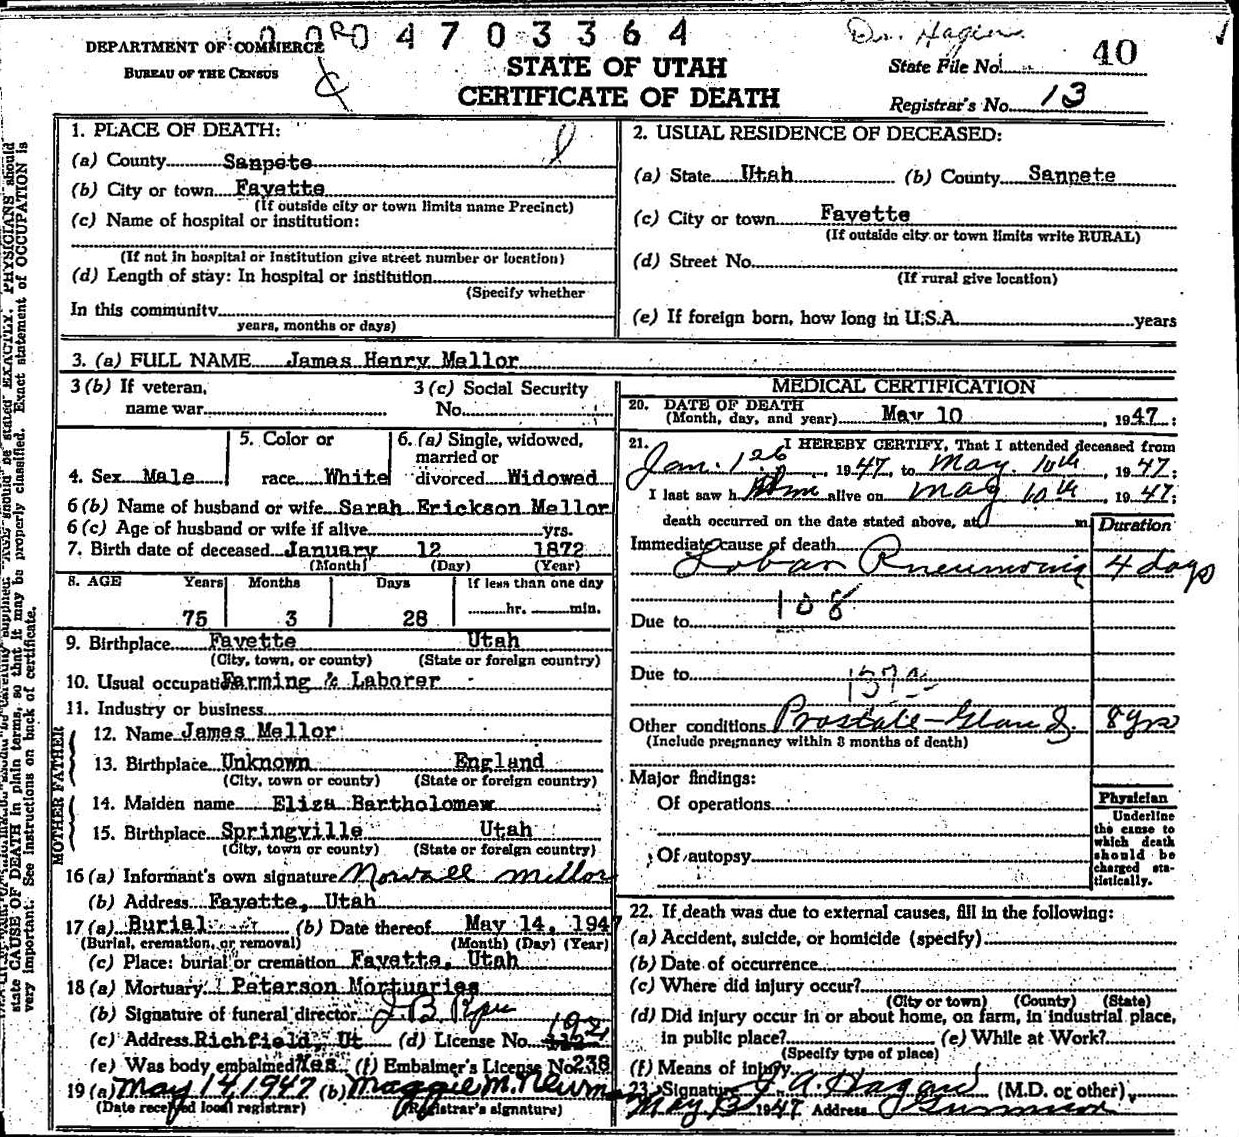 0 0 R 0 4 7 0 3 3 6 4
DEPARTMENT OF COMMERCE
BUREAU OF THE CENSUS
STATE OF UTAH
CERTIFICATE OF DEATH
State File No. 40
Registrar's No. 13
1. PLACE OF DEATH:
(a) County Sanpete
(b) City or town Fayette
(If outside city or town limits name Precinct)
(c) Name of hospital or institution:
(If not in hospital or Institution give street number or location)
(d) Length of stay: In hospital or institution
(Specify whether
In this community
years, months or days)
2. USUAL RESIDENCE OF DECEASED:
(a) State Utah (b) County Sanpete
(c) City or town Fayette
(If outside city or town limits write RURAL)
(d) Street No.
(If rural give location)
(e) If foreign born, how long in U.S.A. years
3. (a) FULL NAME James Henry Mellor
3 (b) If veteran, name war
3 (c) Social Security No.
4. Sex Male
5. Color or race White
6. (a) Single, widowed, married or divorced Widowed
6 (b) Name of husband or wife Sarah Erickson Mellor
6 (c) Age of husband or wife if alive yrs.
7. Birth date of deceased January 12 1872
(Month) (Day) (Year)
8. AGE Years Months Days If less than one day
75 3 28 hr. min.
9. Birthplace Fayette Utah
(City, town, or county) (State or foreign country)
10. Usual occupation Farming & Laborer
11. Industry or business
FATHER
12. Name James Mellor
13. Birthplace Unknown England
(City, town or county) (State or foreign country)
MOTHER
14. Maiden name Eliza Bartholomew
15. Birthplace Springville Utah
(City, town or county) (State or foreign country)
16 (a) Informant's own signature Nowall Mellor
(b) Address Fayette, Utah
17 (a) Burial (b) Date thereof May 14, 1947
(Burial, cremation, or removal) (Month) (Day) (Year)
(c) Place: burial or cremation Fayette, Utah
18 (a) Mortuary Peterson Mortuaries
(b) Signature of funeral director J. B.
(c) Address Richfield, Ut (d) License No. 192
(e) Was body embalmed Yes (f) Embalmer's License No 238
19 (a) May 14, 1947 (b) Maggie M. Newman
(Date received local registrar) (Registrar's signature)
MEDICAL CERTIFICATION
20. DATE OF DEATH
(Month, day, and year) May 10, 1947:
21. I HEREBY CERTIFY, That I attended deceased from
Jan. 1947, to May. 10th, 1947:
I last saw h im alive on May 10th, 1947:
death occurred on the date stated above, at m
Duration
Immediate cause of death
Lobar Pneumonia 4 days
108
Due to
Due to
137a
Other conditions Prostate-Gland. 8 yrs
(Include pregnancy within 3 months of death)
Major findings:
Of operations
Of autopsy
Physician
Underline
the cause to
which death
should be
charged sta-
tistically.
22. If death was due to external causes, fill in the following:
(a) Accident, suicide, or homicide (specify)
(b) Date of occurrence
(c) Where did injury occur?
(City or town) (County) (State)
(d) Did injury occur in or about home, on farm, in industrial place,
in public place? (e) While at Work?
(Specify type of place)
(f) Means of injury
23 Signature J. A. Hagan (M.D. or other)
May 13 1947 Address Gunnison